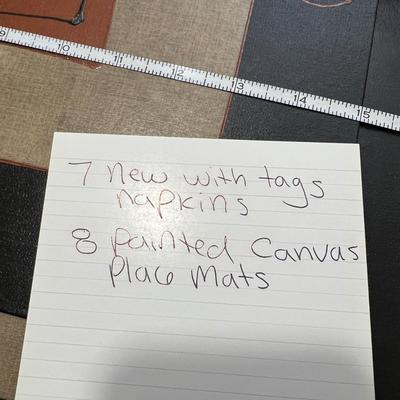 9 10 11 12 13 14 15
7 New with tags
napkins
8 painted Canvas
Place Mats